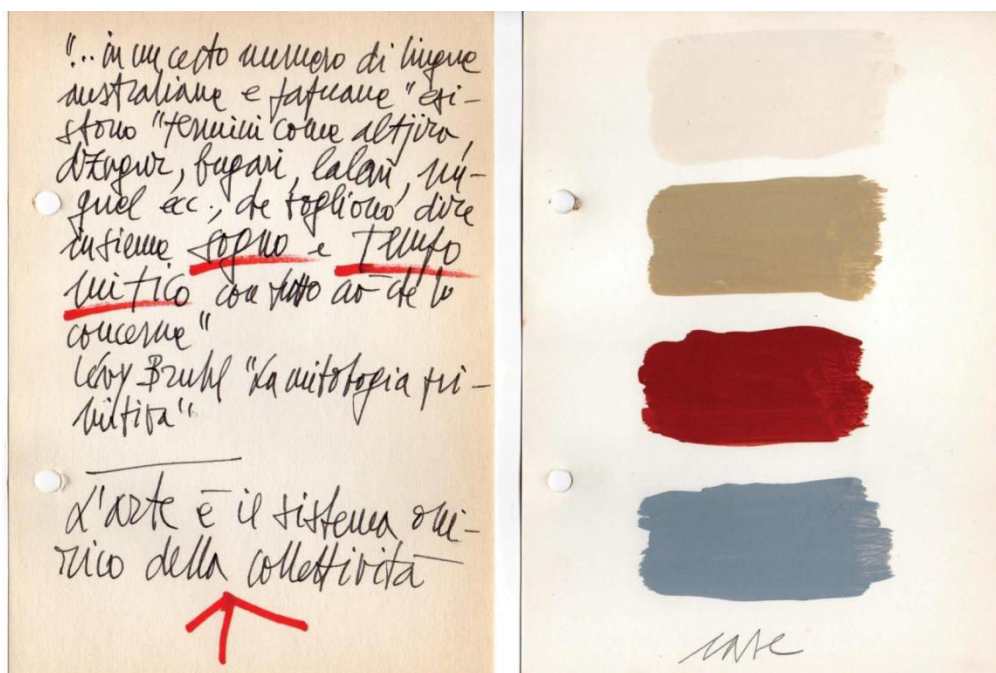 ".. in un certo numero di lingue
australiane e papuane" esi-
stono "termini come altjira,
dzugur, bugari, lalan, un-
gud ecc., che vogliono dire
insieme sogno e tempo
mitico con tutto ciò che lo
concerne"
Lévy-Bruhl "La mitologia pri-
mitiva"
L'arte è il sistema oni-
rico della collettività
case